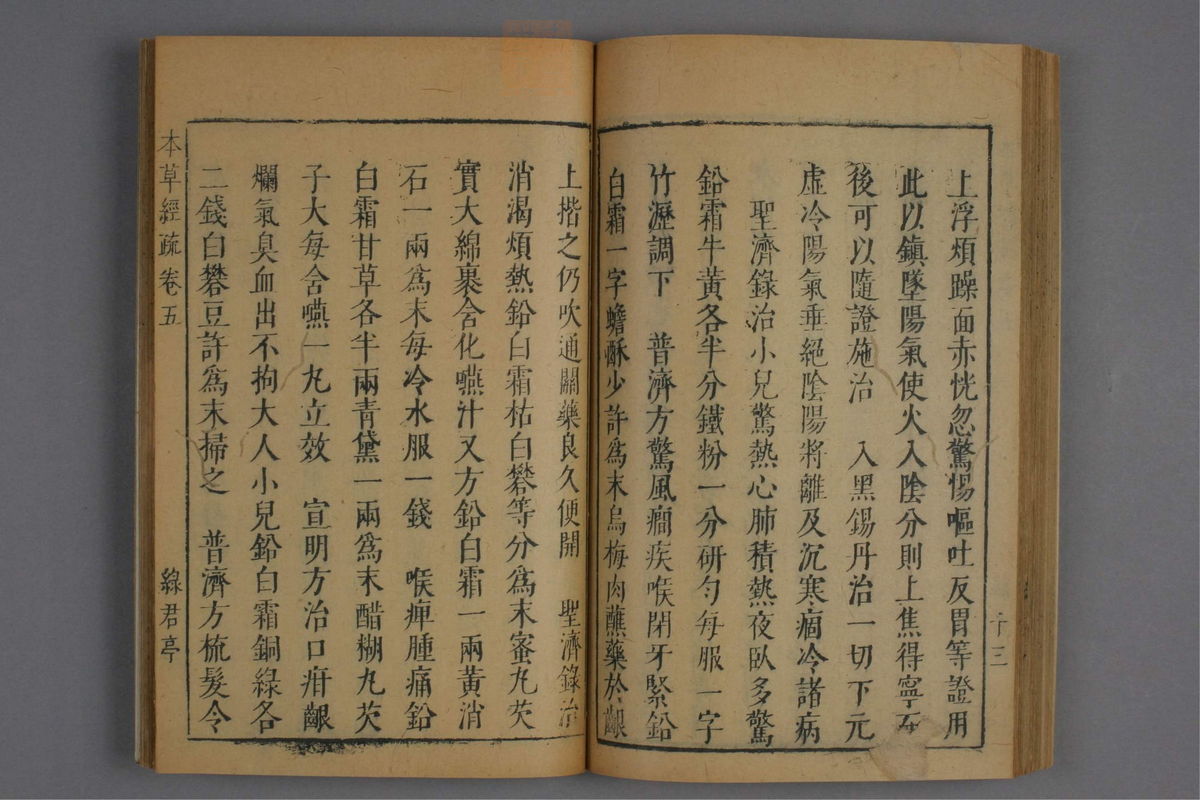 上浮煩躁面赤恍忽驚惕嘔吐反胃等證用
此以鎮墜陽氣使火入陰分則上焦得寧而
後可以隨證施治　入黑錫丹治一切下元
虛冷陽氣垂絕陰陽將離及沉寒痼冷諸病
聖濟錄治小兒驚熱心肺積熱夜臥多驚
鉛霜牛黃各半分鐵粉一分研勻每服一字
竹瀝調下　普濟方驚風癎疾喉閉牙緊鉛
白霜一字蟾酥少許爲末烏梅肉蘸藥於齦
十三
上揩之仍吹通關藥良久便開　聖濟錄治
消渴煩熱鉛白霜枯白礬等分爲末蜜丸芡
實大綿裹含化嚥汁又方鉛白霜一兩黃消
石一兩爲末每冷水服一錢　喉痺腫痛鉛
白霜甘草各半兩青黛一兩爲末醋糊丸芡
子大每含嚥一丸立效　宣明方治口疳齦
爛氣臭血出不拘大人小兒鉛白霜銅綠各
二錢白礬豆許爲末掃之　普濟方梳髮令
本草經疏卷五　綠君亭